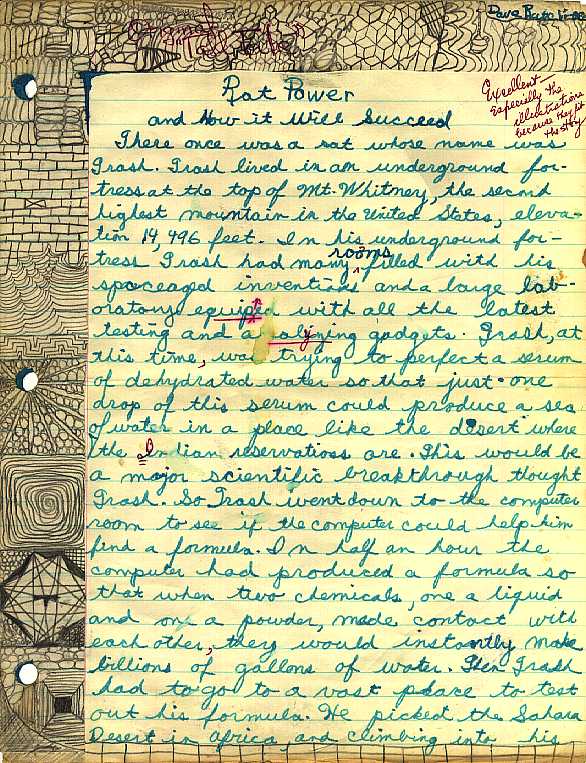 "Tall Tale"
Dave
Excellent—
Especially the
illustrations
because they fit
the story
Rat Power
and How it Will Succeed
There once was a rat whose name was
Trash. Trash lived in an underground for-
tress at the top of Mt. Whitney, the second
highest mountain in the United States, eleva-
tion 14,496 feet. In his underground for-
tress Trash had many rooms filled with his
spaceaged inventions and a large lab-
oratory equiped with all the latest
testing and analyzing gadgets. Trash, at
this time, was trying to perfect a serum
of dehydrated water so that just one
drop of this serum could produce a sea
of water in a place like the desert where
the Indian reservations are. This would be
a major scientific breakthrough thought
Trash. So Trash went down to the computer
room to see if the computer could help him
find a formula. In half an hour the
computer had produced a formula so
that when two chemicals, one a liquid
and one a powder, made contact with
each other, they would instantly make
billions of gallons of water. Then Trash
had to go to a vast place to test
out his formula. He picked the Sahara
Desert in Africa, and climbing into his